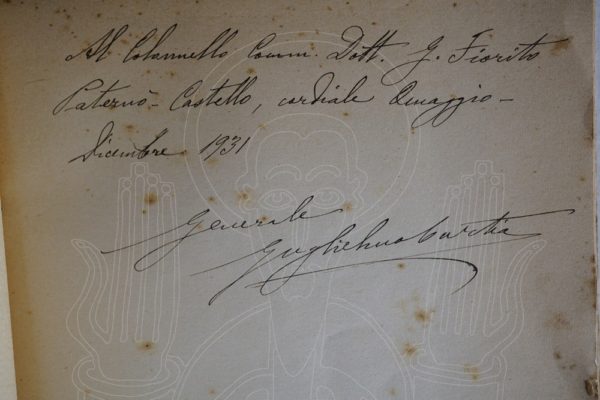 Al Colonnello Comm. Dott. G. Fiorito
Paternò-Castello, cordiale Omaggio-
Dicembre 1931
Generale
Guglielmo